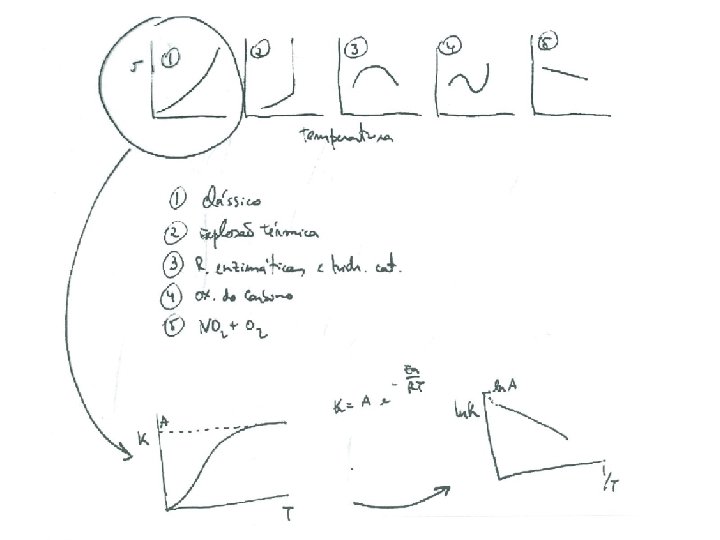 r ① ② ③ ④ ⑤
temperatura
① Clássico
② Explosão térmica
③ R. enzimáticas e hidr. cat.
④ ox. do carbono
⑤ NO₂ + O₂
K = A e^(-Ea/RT)
K A T
lnK lnA 1/T